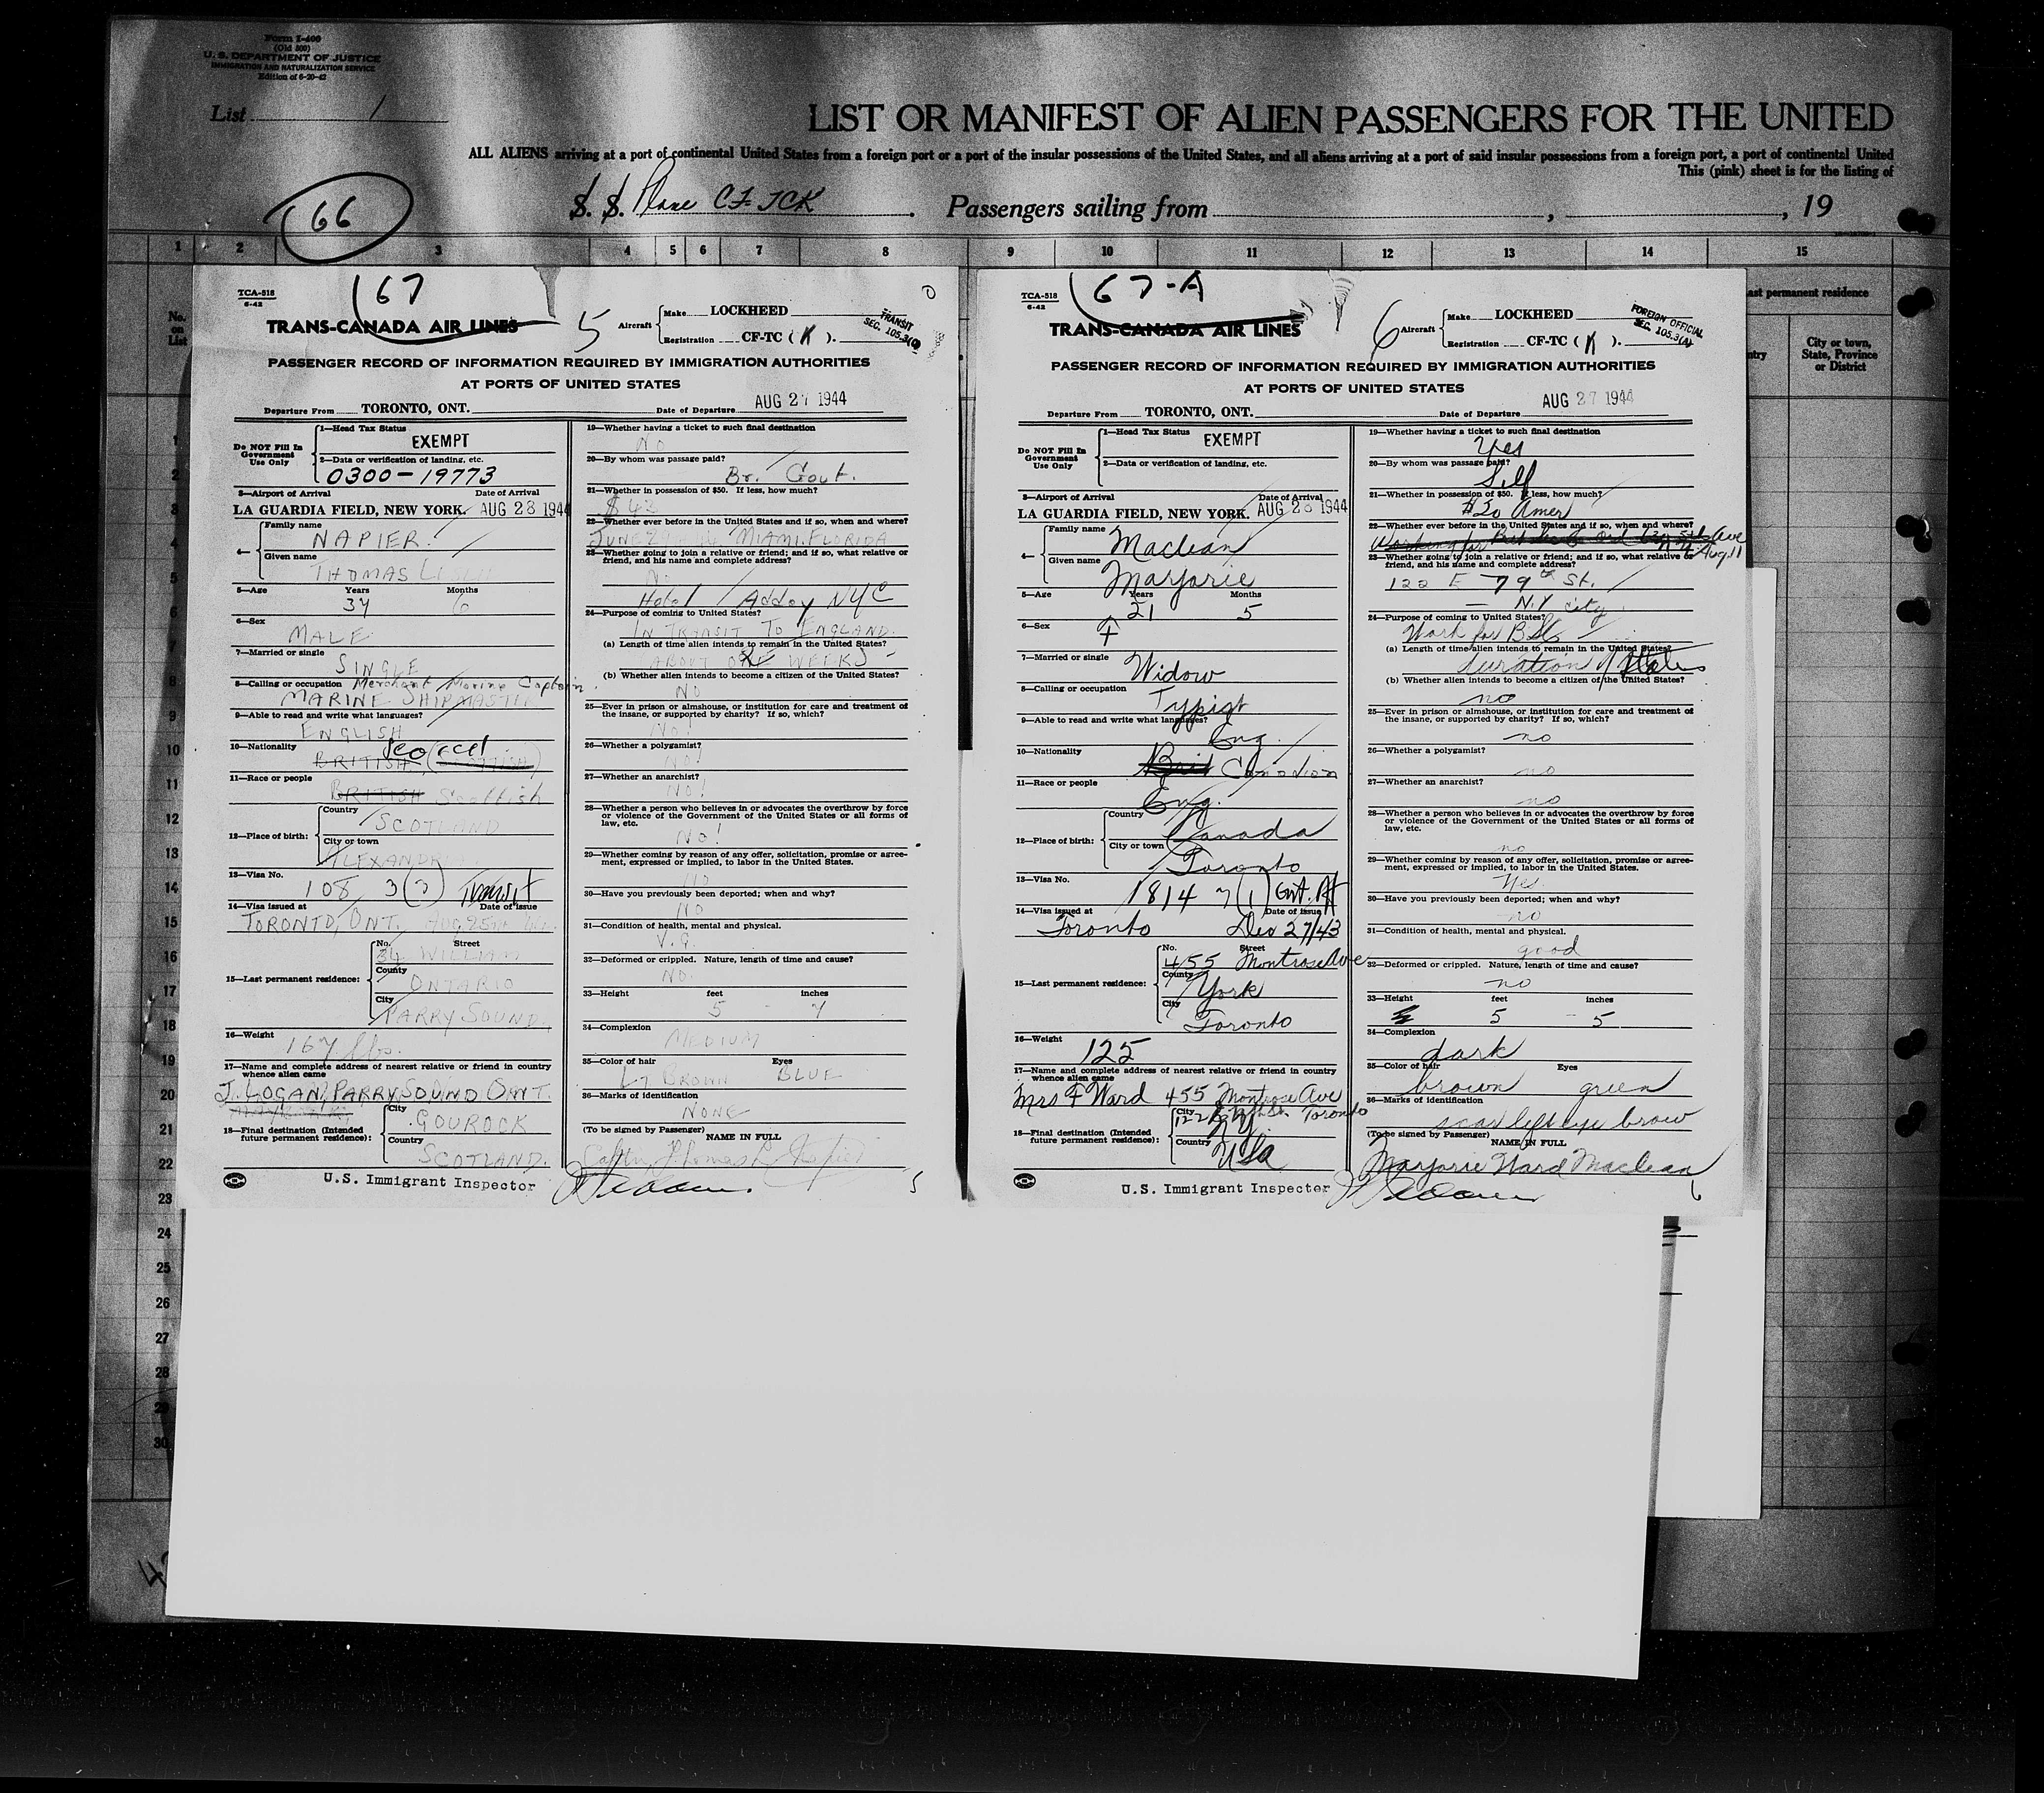 Form I-400
(Old 500)
U. S. DEPARTMENT OF JUSTICE
IMMIGRATION AND NATURALIZATION SERVICE
Edition of 6-20-42
List 1
LIST OR MANIFEST OF ALIEN PASSENGERS FOR THE UNITED
ALL ALIENS arriving at a port of continental United States from a foreign port or a port of the insular possessions of the United States, and all aliens arriving at a port of said insular possessions from a foreign port, a port of continental United
This (pink) sheet is for the listing of
66
S. S. Plane CF-TCK Passengers sailing from , , 19
1 2 3 4 5 6 7 8 9 10 11 12 13 14 15
No. on List
ast permanent residence
ntry
City or town, State, Province or District
1
2
3
4
5
6
7
8
9
10
11
12
13
14
15
16
17
18
19
20
21
22
23
24
25
26
27
28
29
30
TCA-518
6-42
167
TRANS-CANADA AIR LINES
5
Aircraft Make LOCKHEED
Registration CF-TC ( K ).
TRANSIT
SEC. 105.3(C)
PASSENGER RECORD OF INFORMATION REQUIRED BY IMMIGRATION AUTHORITIES
AT PORTS OF UNITED STATES
Departure From TORONTO, ONT. Date of Departure AUG 27 1944
Do NOT Fill In Government Use Only
1—Head Tax Status
EXEMPT
2—Data or verification of landing, etc.
0300-19773
3—Airport of Arrival Date of Arrival
LA GUARDIA FIELD, NEW YORK. AUG 28 1944
4— Family name
NAPIER
Given name
THOMAS
5—Age Years Months
34 6
6—Sex
MALE
7—Married or single
SINGLE
8—Calling or occupation Merchant Marine Captain
MARINE SHIPMASTER
9—Able to read and write what languages?
ENGLISH
10—Nationality
BRITISH (SCOTTISH)
11—Race or people
BRITISH Scottish
12—Place of birth: Country
SCOTLAND
City or town
ALEXANDRIA
13—Visa No.
108 3(3) Transit
14—Visa issued at Date of issue
TORONTO, ONT. Aug 25th
15—Last permanent residence: No. Street
34 WILLIAM
County
ONTARIO
City
PARRY SOUND
16—Weight
167 lbs.
17—Name and complete address of nearest relative or friend in country whence alien came
J. LOGAN, PARRY SOUND ONT.
18—Final destination (Intended future permanent residence): City
GOUROCK
Country
SCOTLAND.
U.S. Immigrant Inspector
19—Whether having a ticket to such final destination
No
20—By whom was passage paid?
Br. Govt.
21—Whether in possession of $50. If less, how much?
$42
22—Whether ever before in the United States and if so, when and where?
JUNE 29 MIAMI. FLORIDA
23—Whether going to join a relative or friend; and if so, what relative or friend, and his name and complete address?
No
Hotel NYC
24—Purpose of coming to United States?
IN TRANSIT TO ENGLAND.
(a) Length of time alien intends to remain in the United States?
ABOUT WEEKS
(b) Whether alien intends to become a citizen of the United States?
NO
25—Ever in prison or almshouse, or institution for care and treatment of the insane, or supported by charity? If so, which?
NO!
26—Whether a polygamist?
NO!
27—Whether an anarchist?
NO!
28—Whether a person who believes in or advocates the overthrow by force or violence of the Government of the United States or all forms of law, etc.
NO!
29—Whether coming by reason of any offer, solicitation, promise or agreement, expressed or implied, to labor in the United States.
NO
30—Have you previously been deported; when and why?
NO
31—Condition of health, mental and physical.
V. G.
32—Deformed or crippled. Nature, length of time and cause?
NO.
33—Height feet inches
5 - 7
34—Complexion
MEDIUM
35—Color of hair Eyes
LT BROWN BLUE
36—Marks of identification
NONE
(To be signed by Passenger) NAME IN FULL
Captn Thomas L Napier
5
TCA-518
6-42
167-A
TRANS-CANADA AIR LINES
6
Aircraft Make LOCKHEED
Registration CF-TC ( K ).
FOREIGN OFFICIAL
SEC. 105.3(A)
PASSENGER RECORD OF INFORMATION REQUIRED BY IMMIGRATION AUTHORITIES
AT PORTS OF UNITED STATES
Departure From TORONTO, ONT. Date of Departure AUG 27 1944
Do NOT Fill In Government Use Only
1—Head Tax Status
EXEMPT
2—Data or verification of landing, etc.
3—Airport of Arrival Date of Arrival
LA GUARDIA FIELD, NEW YORK. AUG 28 1944
4— Family name
Maclean
Given name
Marjorie
5—Age Years Months
21 5
6—Sex
7—Married or single
Widow
8—Calling or occupation
Typist
9—Able to read and write what languages?
Eng.
10—Nationality
Brit Canadian
11—Race or people
Eng.
12—Place of birth: Country
Canada
City or town
Toronto
13—Visa No.
1814 7(1) Gvt. Off
14—Visa issued at Date of issue
Toronto Dec 27/43
15—Last permanent residence: No. Street
455 Montrose Ave
County
York
City
Toronto
16—Weight
125
17—Name and complete address of nearest relative or friend in country whence alien came
Mrs F Ward 455 Montrose Ave
Toronto
18—Final destination (Intended future permanent residence): City
122 E 79th St. N.Y.
Country
USA
U.S. Immigrant Inspector
19—Whether having a ticket to such final destination
Yes
20—By whom was passage paid?
Self
21—Whether in possession of $50. If less, how much?
$20 Amer
22—Whether ever before in the United States and if so, when and where?
Working for Aug 11
23—Whether going to join a relative or friend; and if so, what relative or friend, and his name and complete address?
122 E 79th St.
N.Y city
24—Purpose of coming to United States?
Work for
(a) Length of time alien intends to remain in the United States?
duration of
(b) Whether alien intends to become a citizen of the United States?
no
25—Ever in prison or almshouse, or institution for care and treatment of the insane, or supported by charity? If so, which?
no
26—Whether a polygamist?
no
27—Whether an anarchist?
no
28—Whether a person who believes in or advocates the overthrow by force or violence of the Government of the United States or all forms of law, etc.
no
29—Whether coming by reason of any offer, solicitation, promise or agreement, expressed or implied, to labor in the United States.
Yes
30—Have you previously been deported; when and why?
no
31—Condition of health, mental and physical.
good
32—Deformed or crippled. Nature, length of time and cause?
no
33—Height feet inches
5 - 5
34—Complexion
dark
35—Color of hair Eyes
brown green
36—Marks of identification
scar left eye brow
(To be signed by Passenger) NAME IN FULL
Marjorie Ward Maclean
6